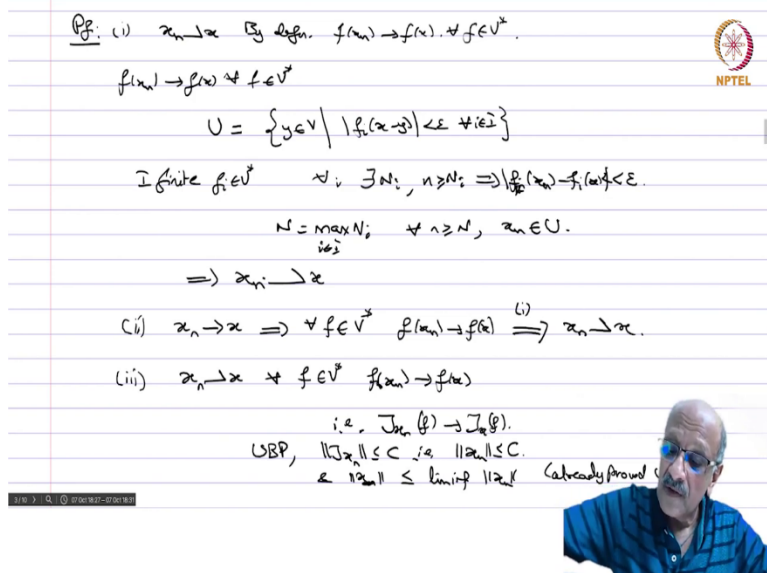 Pf: (i) xₙ ⇀ x By defn. f(xₙ) → f(x). ∀ f ∈ V*.
NPTEL
f(xₙ) → f(x) ∀ f ∈ V*
U = {y ∈ V | |fᵢ(x-y)| < ε ∀ i ∈ I}
I finite fᵢ ∈ V* ∀ i ∃ Nᵢ, n ≥ Nᵢ ⇒ |fᵢ(xₙ) - fᵢ(x)| < ε.
N = max Nᵢ ∀ n ≥ N, xₙ ∈ U.
i∈I
⇒ xₙ ⇀ x
(ii) xₙ → x ⇒ ∀ f ∈ V* f(xₙ) → f(x) (i)⇒ xₙ ⇀ x.
(iii) xₙ ⇀ x ∀ f ∈ V* f(xₙ) → f(x)
i.e. Jxₙ(f) → Jₓ(f).
UBP, ‖Jxₙ‖ ≤ C i.e. ‖xₙ‖ ≤ C.
& ‖x‖ ≤ liminf ‖xₙ‖ (already proved
3/10 07 Oct 18:27–07 Oct 18:31